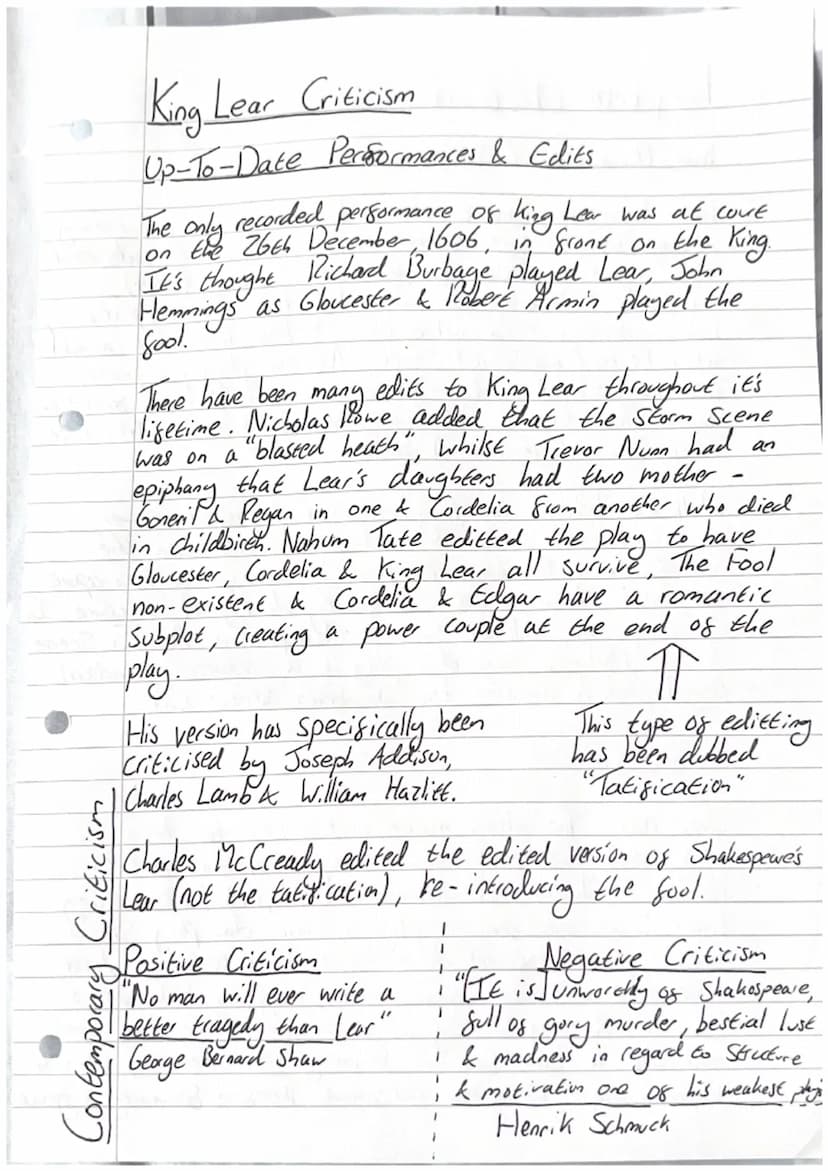 King Lear Criticism
Up-To-Date Performances & Edits
The only recorded performance of King Lear was at court
on the 26th December, 1606, in front on the King.
It's thought Richard Burbage played Lear, John
Hemmings as Gloucester & Robert Armin played the
fool.
There have been many edits to King Lear throughout it's
lifetime. Nicholas Rowe added that the storm scene
was on a "blasted heath", whilst Trevor Nunn had an
epiphany that Lear's daughters had two mother -
Goneril & Regan in one & Cordelia from another who died
in childbirth. Nahum Tate editted the play to have
Gloucester, Cordelia & King Lear all survive, The Fool
non-existent & Cordelia & Edgar have a romantic
subplot, creating a power couple at the end of the
play.
His version has specifically been
criticised by Joseph Addison,
Charles Lamb & William Hazlitt.
This type of editting
has been dubbed
"Tatification"
Charles McCready edited the edited version of Shakespeare's
Lear (not the tatification), re-introducing the fool.
Contemporary Criticism
Positive Criticism
"No man will ever write a
better tragedy than Lear"
George Bernard Shaw
Negative Criticism
"[It is] unworthy of Shakespeare,
full of gory murder, bestial lust
& madness in regard to structure
& motivation one of his weakest plays
Henrik Schmuck